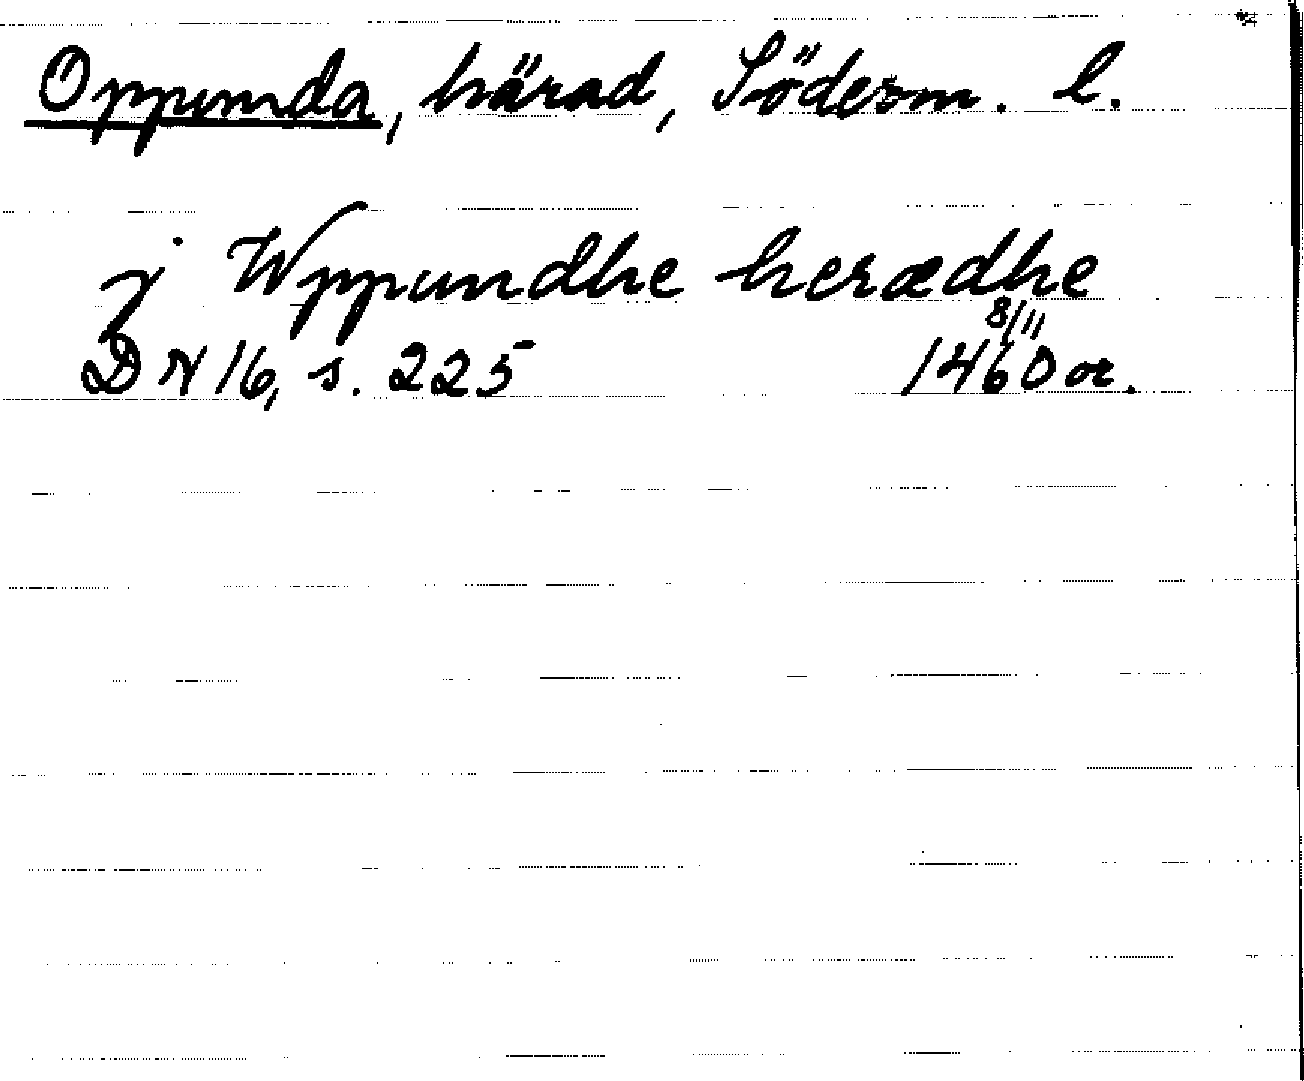 Oppunda, härad, Söderm. l.
j Wppundhe herædhe
8/11
DN 16, s. 225 1460 or.